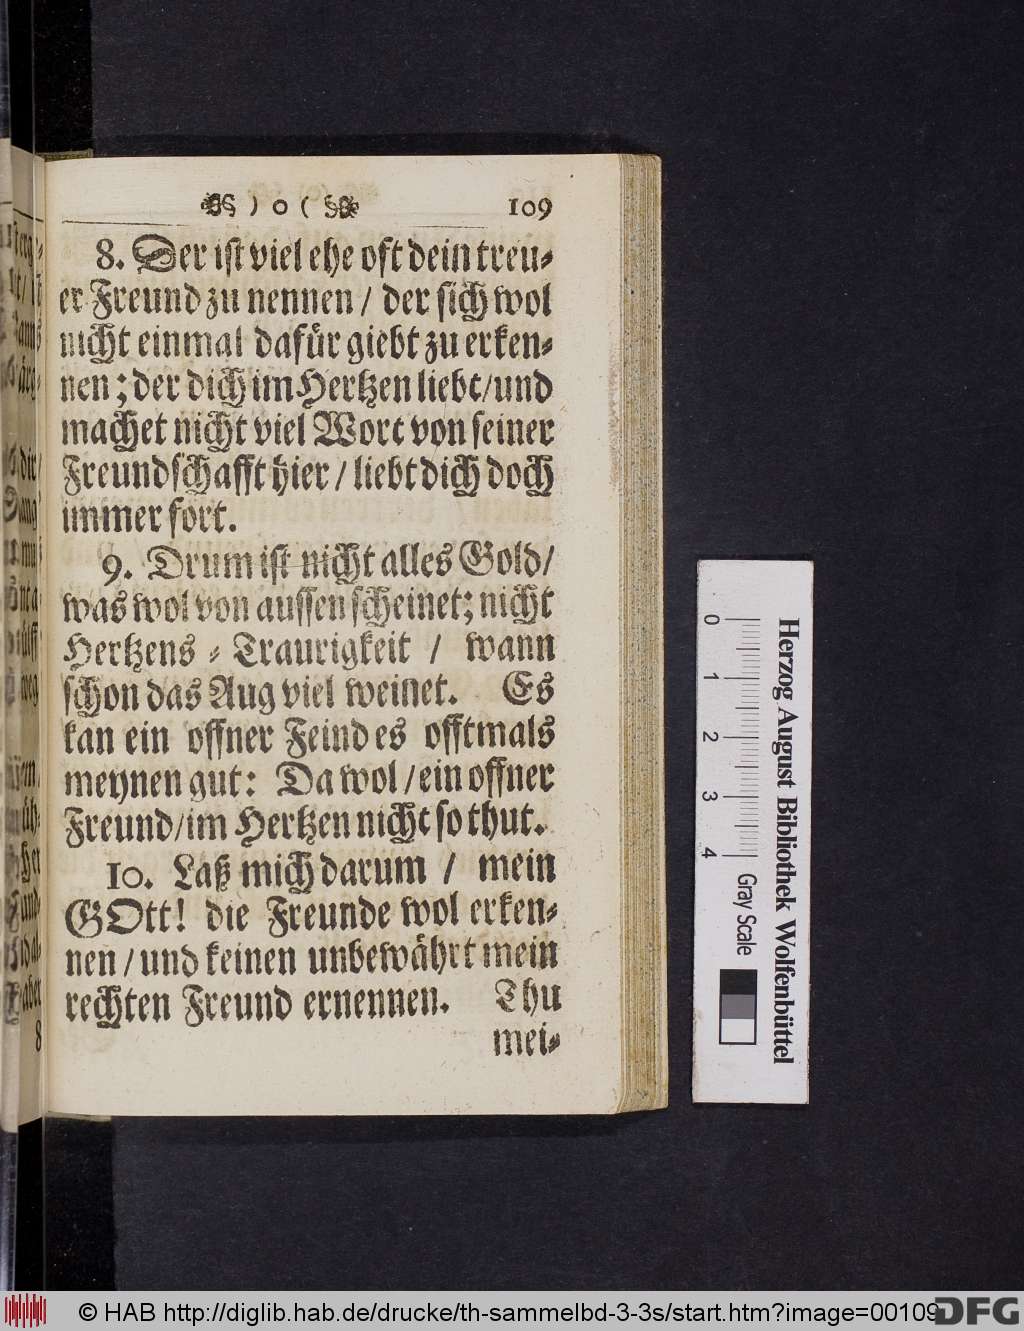 ) o ( 109
8. Der iſt viel ehe oft dein treu⸗
er Freund zu nennen / der ſich wol
nicht einmal dafuͤr giebt zu erken⸗
nen; der dich im Hertzen liebt/und
machet nicht viel Wort von ſeiner
Freundſchafft hier / liebt dich doch
immer fort.
9. Drum iſt nicht alles Gold/
was wol von auſſen ſcheinet; nicht
Hertzens ⸗ Traurigkeit / wann
ſchon das Aug viel weinet. Es
kan ein offner Feind es offtmals
meynen gut: Da wol/ein offner
Freund/im Hertzen nicht ſo thut.
10. Laß mich darum / mein
GOtt! die Freunde wol erken⸗
nen/und keinen unbewaͤhrt mein
rechten Freund ernennen. Thu
mei⸗
0 1 2 3 4 Gray Scale
Herzog August Bibliothek Wolfenbüttel
© HAB http://diglib.hab.de/drucke/th-sammelbd-3-3s/start.htm?image=00109
DFG